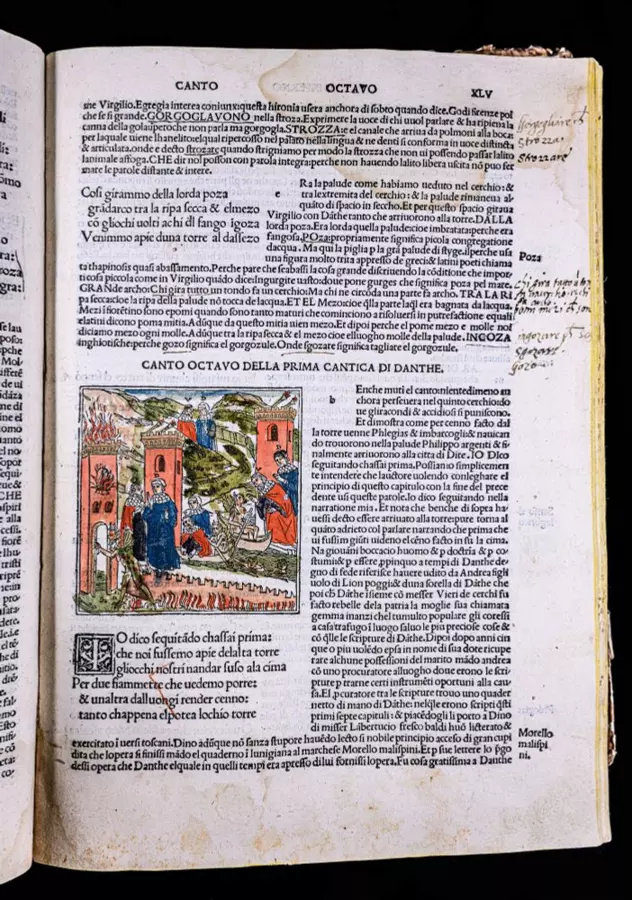 CANTO OCTAVO XLV
ne Virgilio. Egregia interea coniunxi: questa hironia usera anchora di sobto quando dice. Godi firenze poi
che se si grande. GORGOGLAVONO nella stroza. Exprimere la uoce di chi uuol parlare & ha ripiena la
canna della gola: uperoche non parla ma gorgogla. STROZZA: e el canale che arriua da polmoni alla boca:
per laquale uiene lhanelito: elqual ripercosso nel palato nella lingua & ne denti si conforma in uoce distincta
& articulata. onde e decto strozare quando strigniamo per modo la strozza che non ui possendo passar lalito
lanimale affoga. CHE dir nol posson con parola integra: perche non hauendo lalito libera uscita nõ puo ser
uare le parole distante & intere.
Cosi girammo della lorda poza
grãdarco tra la ripa secca & elmezo
cõ gliochi uolti achi dl fango igoza
Venimmo apie duna torre al dassezo
e Ra la palude come habiamo ueduto nel cerchio: &
tra lextremita del cerchio: & la palude rimaneua al
quãto di spatio in seccho. Et per questo spatio giraua
Virgilio con Dãthe tanto che arriuorono alla torre. DALLA
lorda poza. Era lorda quella palude cioe imbratata: perche era
fangosa. POza: propriamente significa picola congregatione
dacqua. Ma qui la pigla p la grã palude di styge. Il perche usa
una figura molto trita appresso de greci & latini poeti chiama
ta thapinosis quasi abassamento. Perche pare che sabassi la cosa grande discriuendo la cõditione che impor
ti cosa picola come in Virgilio quãdo dice In gurgite uasto: doue pone gurges che significa poza pel mare.
GRANde archo: Chi gira tutto un tondo fa un cerchio: Ma chi ne circũda una parte fa archo. TRA LA RI
pa secca: cioe la ripa della palude nõ tocca de lacqua. ET EL Mezo: cioe qlla parte laqual era bagnata da lacqua.
Mezi in fiorẽtino sono epomi quando sono tanto maturi che cominciono a risoluersi in putrefactione equali
elatini dicono poma mitia. Adũque da questo mitia uien mezo. Et dipoi perche el pome mezo e molle noi
diciamo mezo ogni molle. Adũque tra la ripa secca & el mezo cioe elluogho molle della palude. INGOZA
inghiotische: perche gozo significa el gorgozule. Onde sgozare significa tagliare el gorgozule.
CANTO OCTAVO DELLA PRIMA CANTICA DI DANTHE.
b Enche muti el canto: nientedimeno an
chora perseuera nel quinto cerchio: do
ue gliracondi & accidiosi si puniscono.
Et dimostra come per cenno facto dal
la torre uenne Phlegias & imbarcogli: & nauican
do trouorono nella palude Philippo argenti & fi
nalmente arriuorono alla citta di Dite. IO DIco
seguitando chassai prima. Possiamo simplicemen
te intendere che lauctore uolendo conleghare el
principio di questo capitulo con la fine del prece
dente usi queste parole. Io dico seguitando nella
narratione mia. Et nota che benche di sopra ha
uessi decto essere arriuato alla torre: pure torna al
quãto adrieto col parlare narrando che prima che
ui fussim giũti uideno el cẽno facto in su la cima.
Na giouãni boccacio huomo & p doctria & p co
stumi: & p essere ppinquo a tempi di Danthe de
gno di fede riferisce hauere udito da Andrea figli
uolo di Lion poggi: & duna sorella di Dãthe che
poi ch Dãthe isieme cõ messer Vieri de cerchi fu
facto rebelle della patria la moglie sua chiamata
gemma inanzi chel tumulto popolare gli corressi
a casa: trafugo i luogo saluo le piu preciose cose &
cõ qlle le scripture di Dãthe. Dipoi dopo anni cin
que o piu uolẽdo epsa in nome di sua dote ricupe
rare alchune possessioni del marito mãdo andrea
cõ uno procuratore alluogho doue erono le scrip
ture p trarne certi instrumẽti oportuni alla cau
sa. El pcuratore tra le scripture trouo uno quader
netto di mano di Dãthe: nelqle erono scripti qsti
primi septe capituli: & piacẽdogli li porto a Dino
di misser Libertuccio fresco baldi huõ licterato &
IO dico seguitãdo chassai prima:
che noi fussemo apie delalta torre
gliocchi nostri nandar suso ala cima
Per due fiammette che uedemo porre:
& unaltra dallungi render cenno:
tanto chappena el potea lochio torre
exercitato i uersi toscani. Dino adũque nõ sanza stupore hauẽdo lecto si nobile principio acceso di gran cupi
dita che lopera si finissi mãdo el quaderno i lunigiana al marchese Morello malispini. Et p sue lettere lo pgo
dessi opera che Danthe elquale in quelli tempi era apresso di lui fornissi lopera. Fu cosa gratissima a Danthe
Gorgogliare
Strozza:
Strozzare
Poza
ingozare
Sgozare
gozo
Morello
malispi
ni.